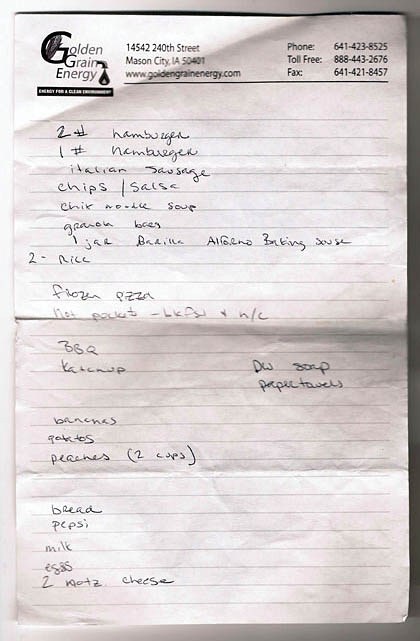 Golden Grain Energy
ENERGY FOR A CLEAN ENVIRONMENT
14542 240th Street
Mason City, IA 50401
www.goldengrainenergy.com
Phone: 641-423-8525
Toll Free: 888-443-2676
Fax: 641-421-8457
2 # hamburger
1 # hamburger
italian sausage
chips / salsa
chik noodle soup
granola bars
1 jar Barilla Alfredo Baking sause
2 - Rice
frozen pizza
Hot pocket - bkfst & h/c
BBQ
Ketchup
DW soap
papertowels
bananas
potatos
peaches (2 cups)
bread
pepsi
milk
eggs
2 motz. cheese